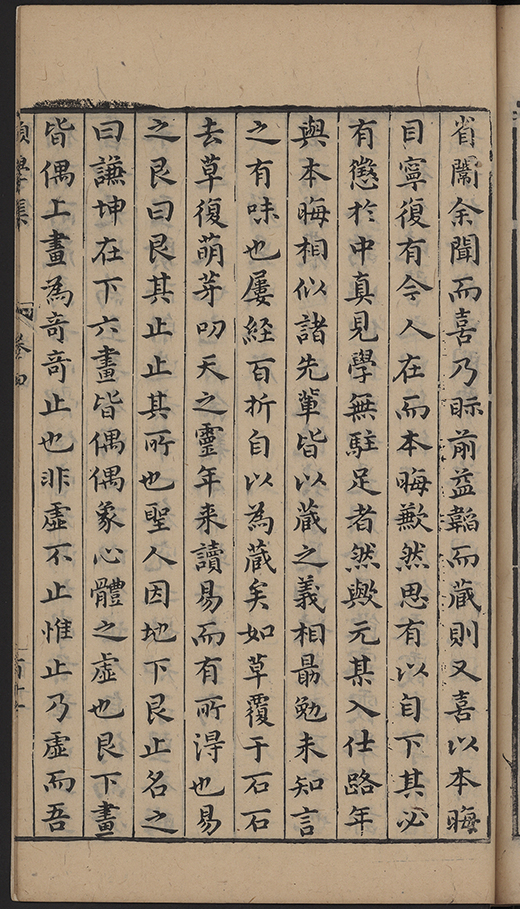 省闈余聞而喜乃眎前益韜而藏則又喜以本晦
目寧復有今人在而本晦歉然思有以自下其必
有懲於中真見學無駐足者然與元某入仕路年
與本晦相似諸先軰皆以藏之義相勗勉未知言
之有味也屢經百折自以為藏矣如草覆于石石
去草復萌芽叨天之靈年来讀易而有所得也易
之艮曰艮其止止其所也聖人因地下艮止名之
曰謙坤在下六畫皆偶偶象心體之虛也艮下畫
皆偶上畫為竒竒止也非虛不止惟止乃虛而吾
願學集 卷四